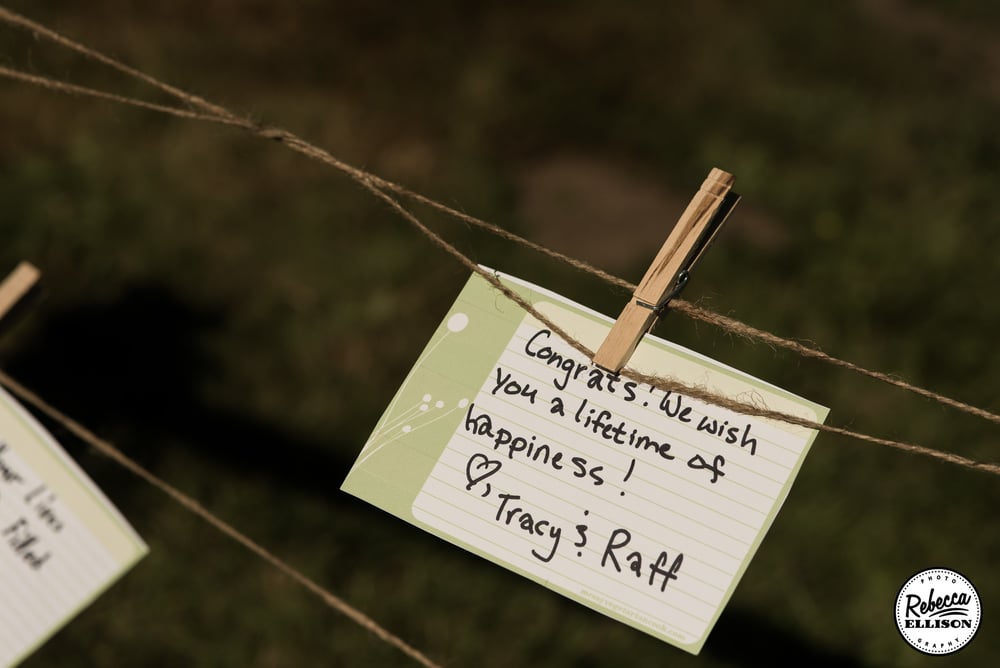 Congrats! We wish
you a lifetime of
happiness!
♡,
Tracy & Raff
Lives
Filled
PHOTO
Rebecca
ELLISON
GRAPHY